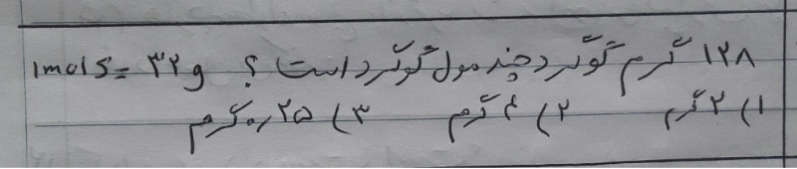 ۱۲۸ گرم گوگرد چند مول گوگرد است ؟ 1mol S = ۳۲ g
۱) ۲ گرم ۲) ۴ گرم ۳) ۰٫۲۵ گرم